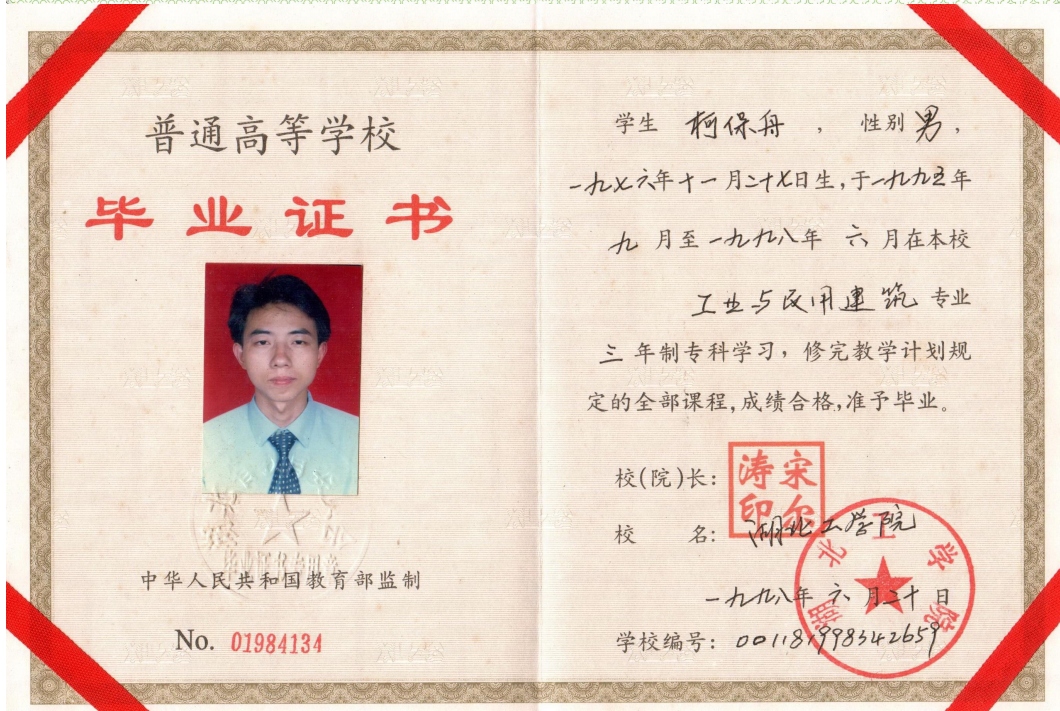 普通高等学校
毕业证书
中华人民共和国教育部监制
No. 01984134
学生 柯保舟 ， 性别 男，
一九七六年十一月二十七日生,于一九九五年
九 月至一九九八年 六 月在本校
工业与民用建筑 专业
三 年制专科学习，修完教学计划规
定的全部课程,成绩合格,准予毕业。
校(院)长：
宋尔涛印
校 名: 湖北工学院
湖北工学院
一九九八年 六 月二十 日
学校编号: 001181998342659